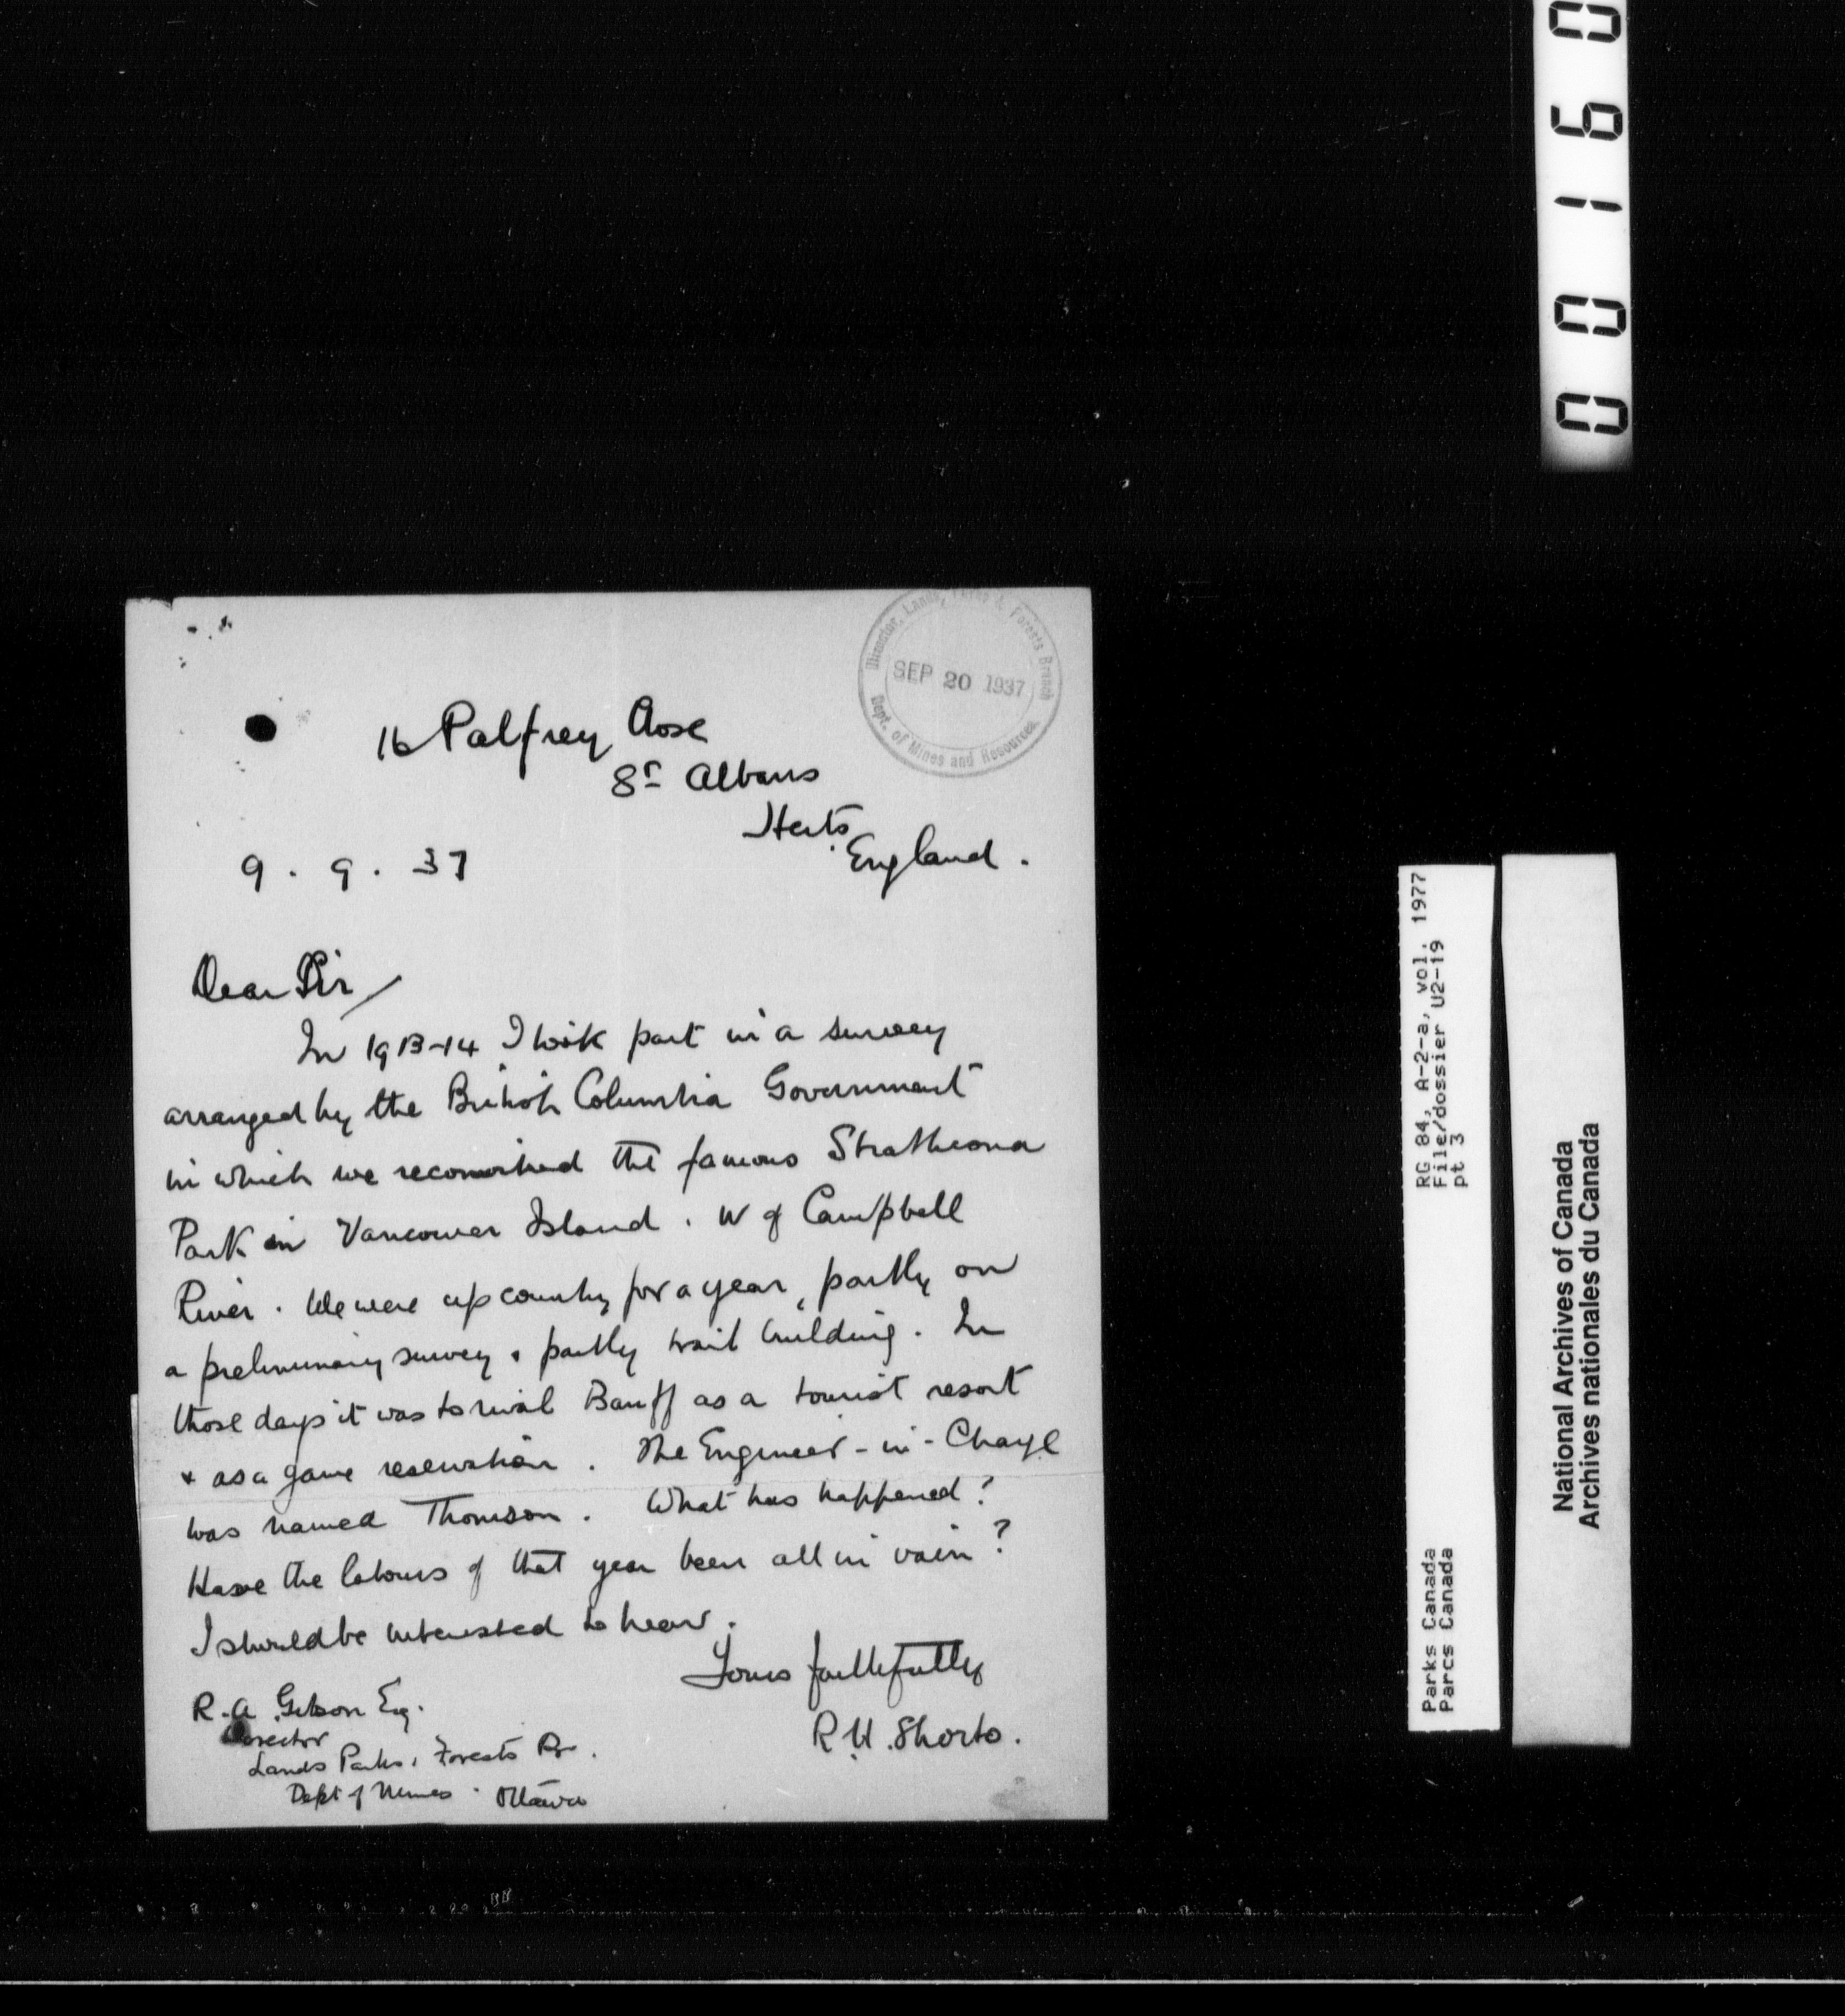 00160
Director, Lands, Parks & Forests Branch
SEP 20 1937
Dept. of Mines and Resources
16 Palfrey Close
St Albans
Herts
England.
9. 9. 37
Dear Sir/
In 1913-14 I took part in a survey
arranged by the British Columbia Government
in which we reconnoitred the famous Strathcona
Park in Vancouver Island. W of Campbell
River. We were up country for a year, partly on
a preliminary survey & partly trail building. In
those days it was to rival Banff as a tourist resort
& as a game reservation. The Engineer-in-Charge
was named Thomson. What has happened?
Have the labours of that year been all in vain?
I should be interested to hear.
Yours faithfully
R.H. Shorto.
R.A. Gibson Esq.
Director
Lands Parks, Forests Br.
Dept of Mines. Ottawa
RG 84, A-2-a, vol. 1977
File/dossier U2-19
pt 3
Parks Canada
Parcs Canada
National Archives of Canada
Archives nationales du Canada